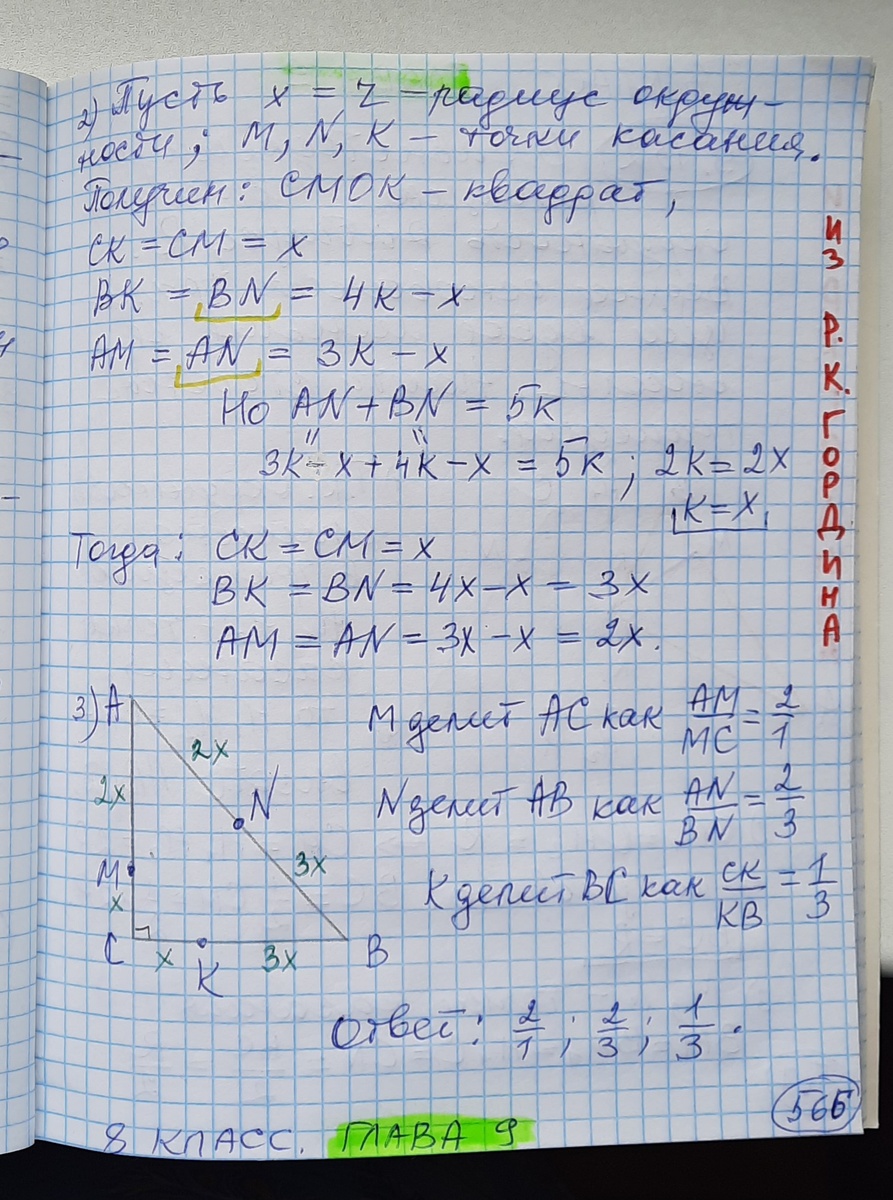 2) Пусть x = r – радиус окруж-
ности; M, N, K – точки касания.
Получим: CMOK – квадрат,
CK = CM = x
BK = BN = 4к – x
AM = AN = 3к – x
Но AN + BN = 5к
3к – x + 4к – x = 5к ; 2к = 2x
к = x
Тогда: CK = CM = x
BK = BN = 4x – x = 3x
AM = AN = 3x – x = 2x.
3) A
2x
2x
N
M
3x
x
C
x
K
3x
B
M делит AC как AM/MC = 2/1
N делит AB как AN/BN = 2/3
K делит BC как CK/KB = 1/3
Ответ: 2/1 ; 2/3 ; 1/3 .
ИЗ Р. К. ГОРДИНА
8 КЛАСС. ГЛАВА 9